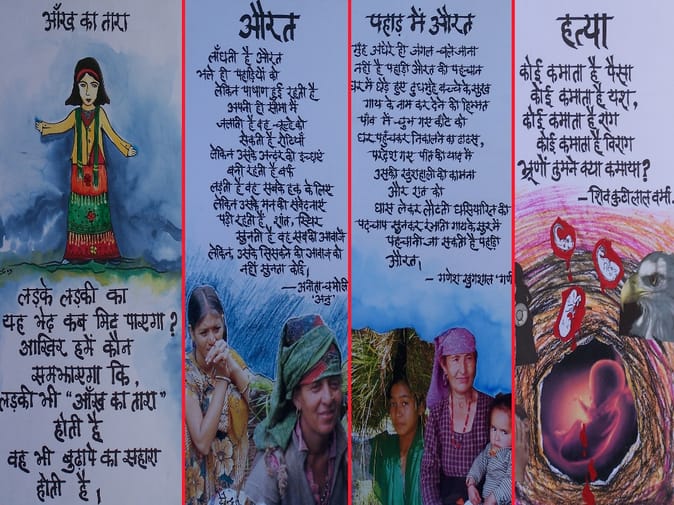 आँख का तारा
लड़के लड़की का
यह भेद कब मिट पाएगा?
आखिर हमें कौन
समझाएगा कि,
लड़की भी "आँख का तारा"
होती है
वह भी बुढ़ापे का सहारा
होती है।
औरत
लाँघती है औरत
भले ही पहाड़ियों को
लेकिन पाषाण हुई रहती है
अपनी ही सीमा में
जलाती है वह चूल्हे को
सेकती है रोटियाँ
लेकिन उसके अन्दर की इच्छाएं
बनी रहती है बर्फ
लड़ती है वह सबके हक के लिए
लेकिन उसके मन की संवेदनाएं
पड़ी रहती हैं, शांत, स्थिर
सुनती है वह सबकी आवाजें
लेकिन, उसके सिसकने की आवाज को
नहीं सुनता कोई।
—अनीता
'अनु'
पहाड़ में औरत
मुँह अंधेरे ही जंगल चले जाना
नहीं है पहाड़ी औरत की पहचान
घर में छोड़े हुए दुधमुंहे बच्चे के सुख
गाय के नाम कर देने की हिम्मत
पाँव में चुभ गए काँटे को
घर पहुँचकर निकालने का ढाढस,
परदेश गए पति की याद में
उसकी खुशहाली की कामना
और रात को
घास लेकर लौटती घसियारिन की
पदचाप सुनकर रंभाती गाय के सुर में
पहचानी जा सकती है पहाड़ी
औरत।
— गणेश खुगशाल 'गणी'
हत्या
कोई कमाता है पैसा
कोई कमाता है यश,
कोई कमाता है राग
कोई कमाता है विराग
भ्रूणों तुमने क्या कमाया?
—शिव कुटी लाल वर्मा